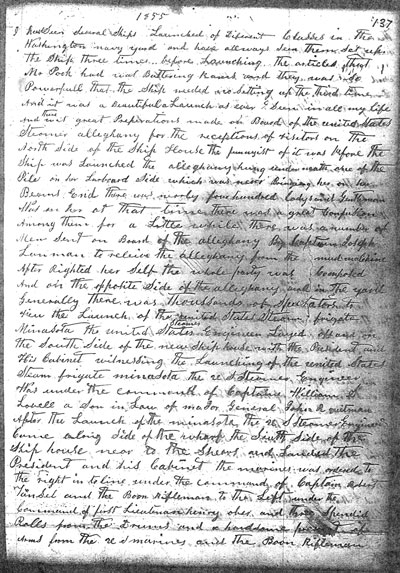 1855
137
I had seen several Ships Launched of different Classes in the
Washington navy yard and have allways seen them set up
the Ship three times before Launching the articled that
Mr Pook had was Battering Ramsh and they was so
Powerfull that the Ship needed no setting up the third time
And it was a beautiful a Launch as ever I seen in all my life
And there was great Preparations made on Board of the united States
Steamer alleghany for the receptions of visitors on the
North Side of the Ship House the funnyist of it was before the
Ship was Launched the alleghany hung underneath one of the
Piles on her Larboard Side which was never Bringing her on her
Beams End there was nearly four hundred Ladys and Gentlemen
Was on her at that time there was a great Confusion
Among them for a Little while there was a number of
Men Sent on Board of the alleghany By Captain Joseph
Lanman to relieve the alleghany from the
After Righted her Self the whole party was Composed
And on the opposite Side of the alleghany and in the yard
Generally there was thousands of Spectators to
View the Launch of the united States Steam frigate
Minasota the united States Steamer Engineer Layed off in
the South Side of the new Ship house with the President and
His Cabinet witnessing the Launching of the united States
Steam frigate minasota the u S Steamer Engineer
Was under the command of Captain William S
Lovell a Son in Law of major General John A quitman
After the Launch of the minasota the u S Steamer Engineer
Came along Side of the wharf the South Side of the
Ship house near to the Shears and Landed the
President and his Cabinet the marines was ordered to
the right in to line under the command of Captain
Tansel and the Boon Riflemen to the Left under the
Command of first Lieutenant henry ober and three Splendid
Rolls from the Drums and a handsome present of
Arms from the u S marines and the Boon Riflemen